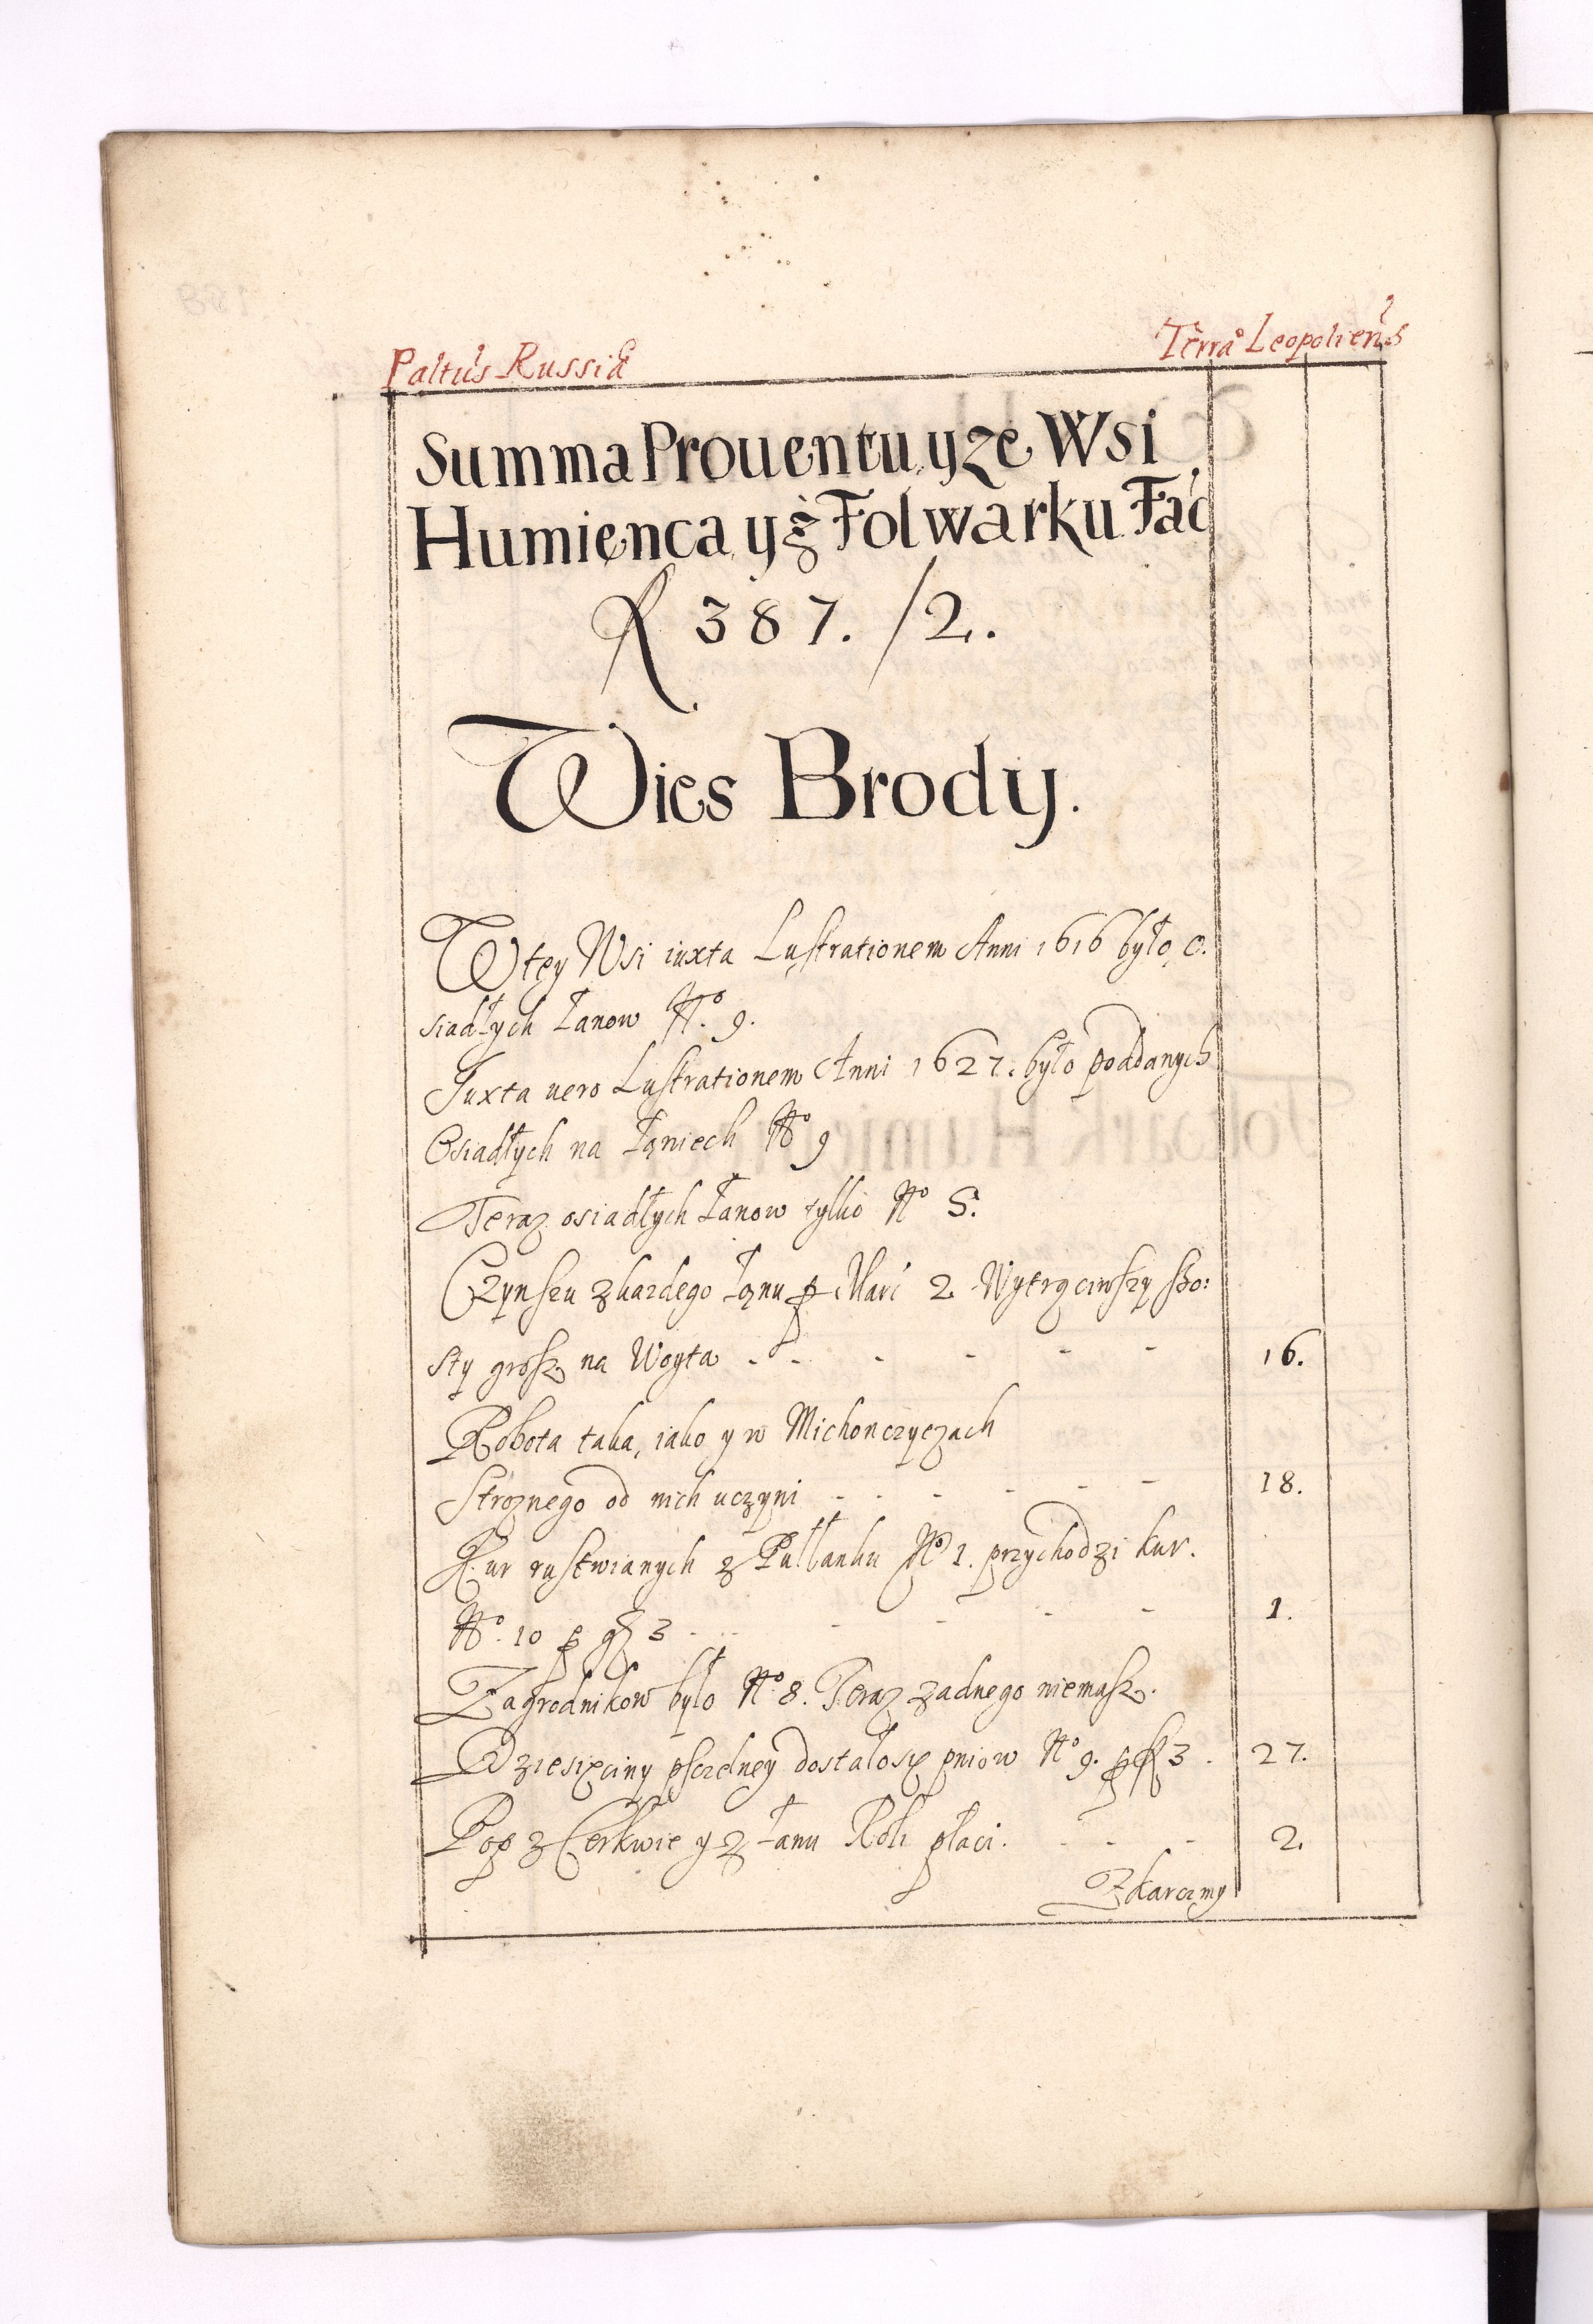 Paltus Russiæ
Terræ Leopolien̄s
Summa Prouentu, y ze Wsi
Humienca, y z Folwarku Fac
R 387. /2.
Wies Brody.
W tey Wsi iuxta Lustrationem Anni 1616 było, o.
siadłych Łanow No. 9.
Juxta uero Lustrationem Anni 1627. było poddanych
Osiadłych na Łaniech No 9
Teraz osiadłych Łanow tylko No 5.
Czynszu z kazdego Łanu p Marc 2 Wytrąciwszy szo:
sty grosz na Woyta - - - - - - 16.
Robota taka, iako y w Michonczyczach
Stroznego od nich uczyni - - - - - - 18.
Kur rustwianych z Pułłanku No 1. przychodzi kur.
No. 10 p gr 3 - - - - - 1.
Zagrodnikow było No 8. Teraz zadnego niemasz.
Dziesięciny pszczelney dostało się pniow No 9. p fl 3. 27.
Pop z Cerkwie y z Łanu Roli płaci. - - - 2.
Z karczmy